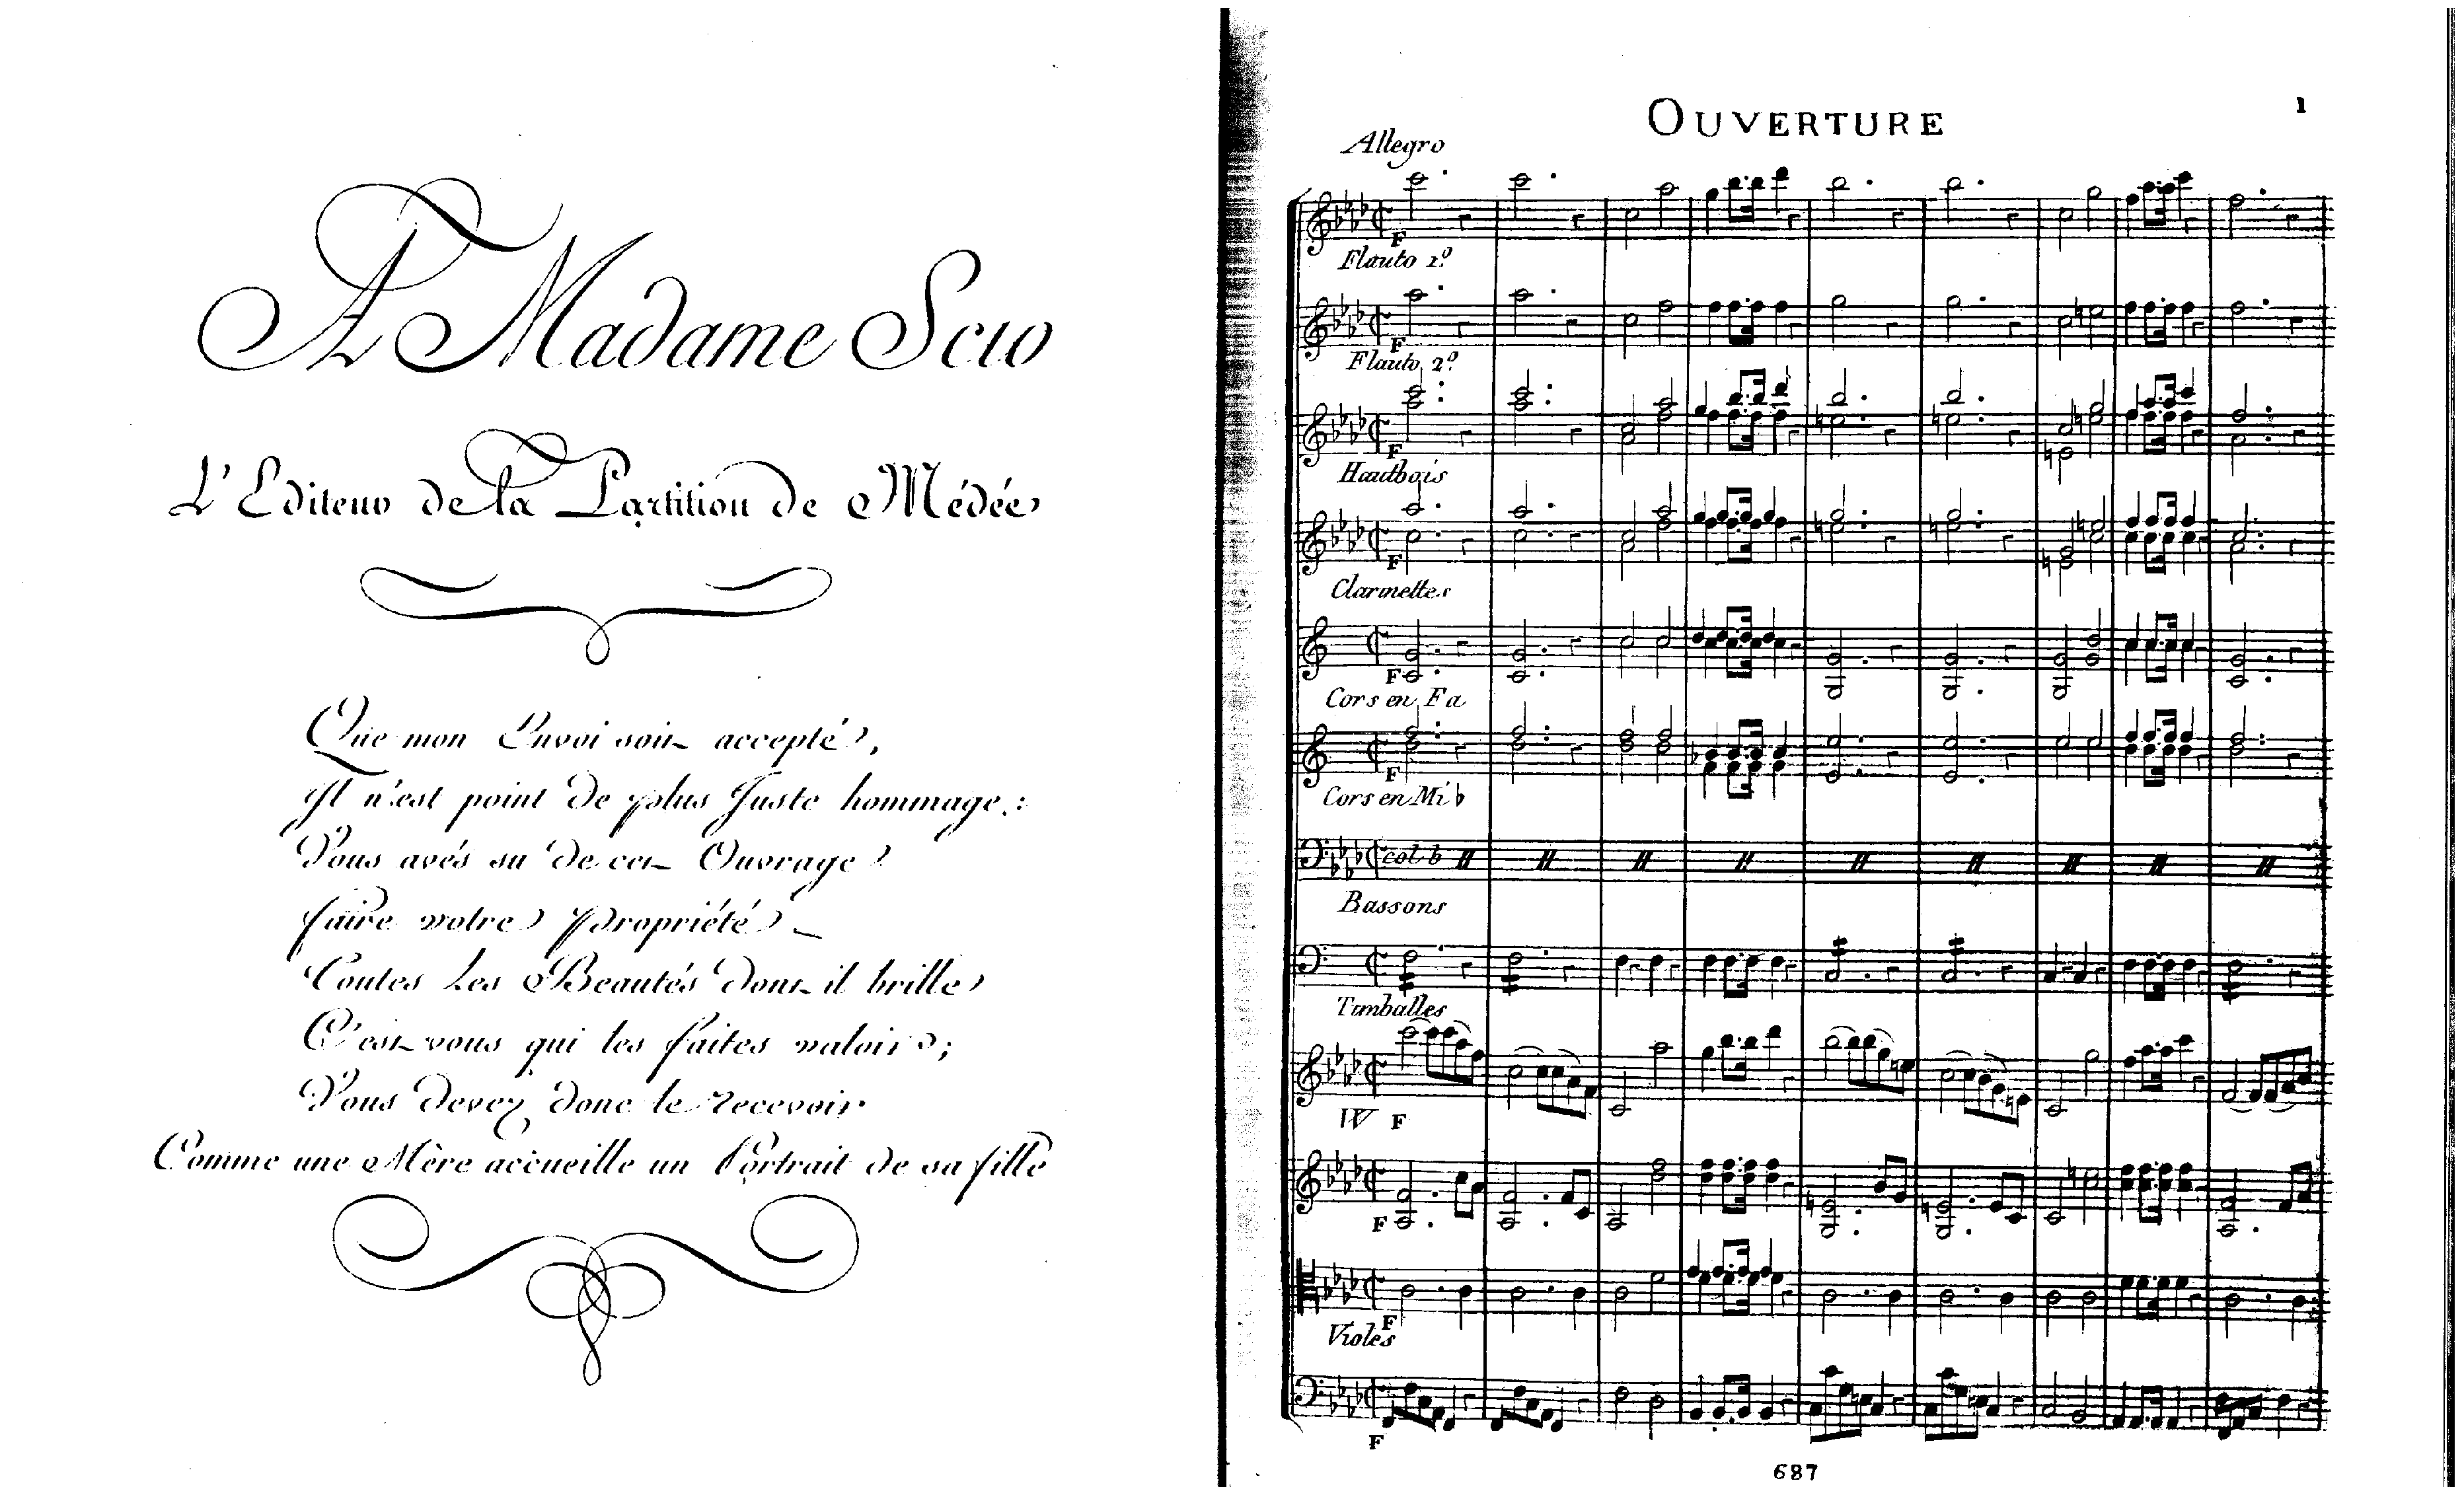 A Madame Scio
L'Editeur de la Partition de Médée
Que mon Envoi soit accepté,
Il n'est point de plus Juste hommage:
Vous avés su de cet Ouvrage
faire votre propriété
Toutes Les Beautés dont il brille
C'est vous qui les faites valoir;
Vous devez donc le recevoir
Comme une Mère accueille un Portrait de sa fille
1
OUVERTURE
Allegro
F
Flauto 1º
F
Flauto 2º
F
Hautbois
F
Clarinettes
F
Cors en Fa
F
Cors en Mi b
col b
Bassons
Timballes
VV F
F
F
Violes
F
687